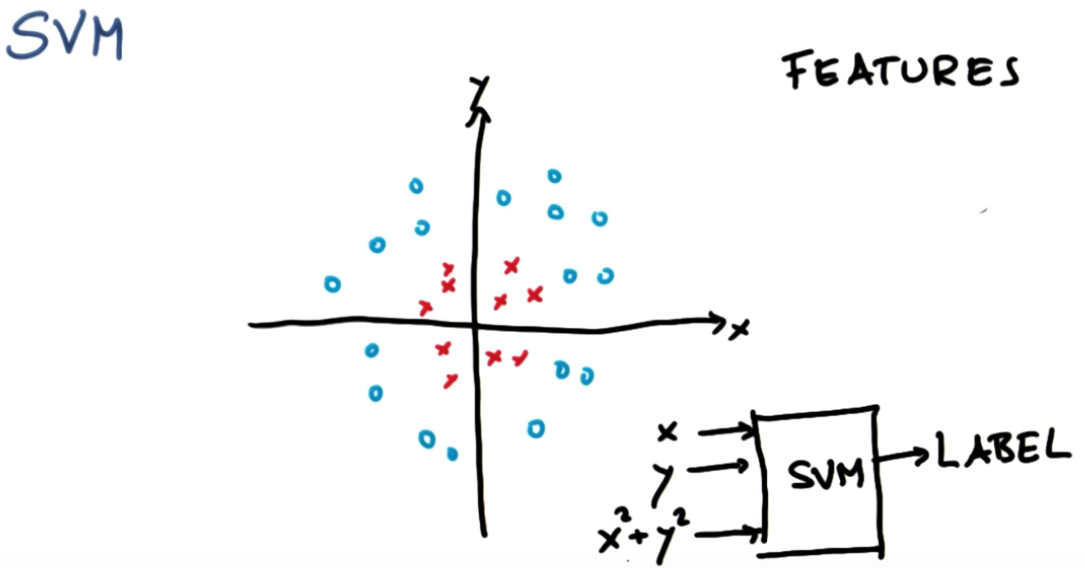 SVM
FEATURES
y
x
x
y
x²+y²
SVM
LABEL